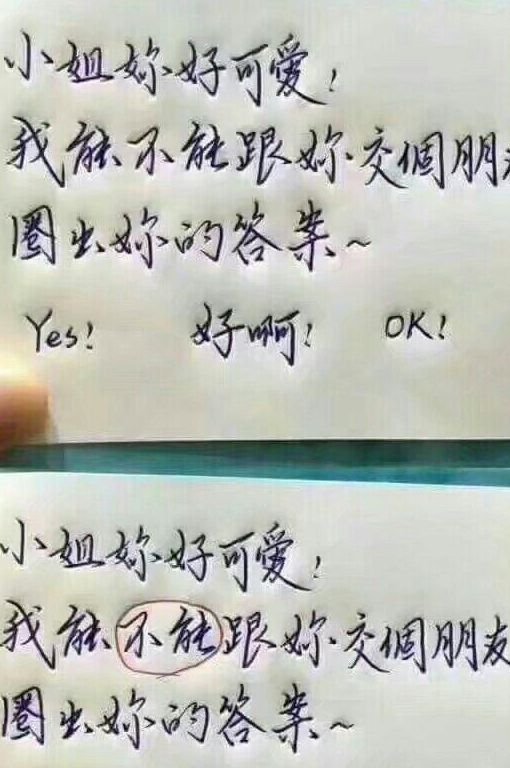 小姐妳好可愛!
我能不能跟妳交個朋
圈出妳的答案~
Yes! 好啊! OK!
小姐妳好可愛!
我能不能跟妳交個朋友
圈出妳的答案~